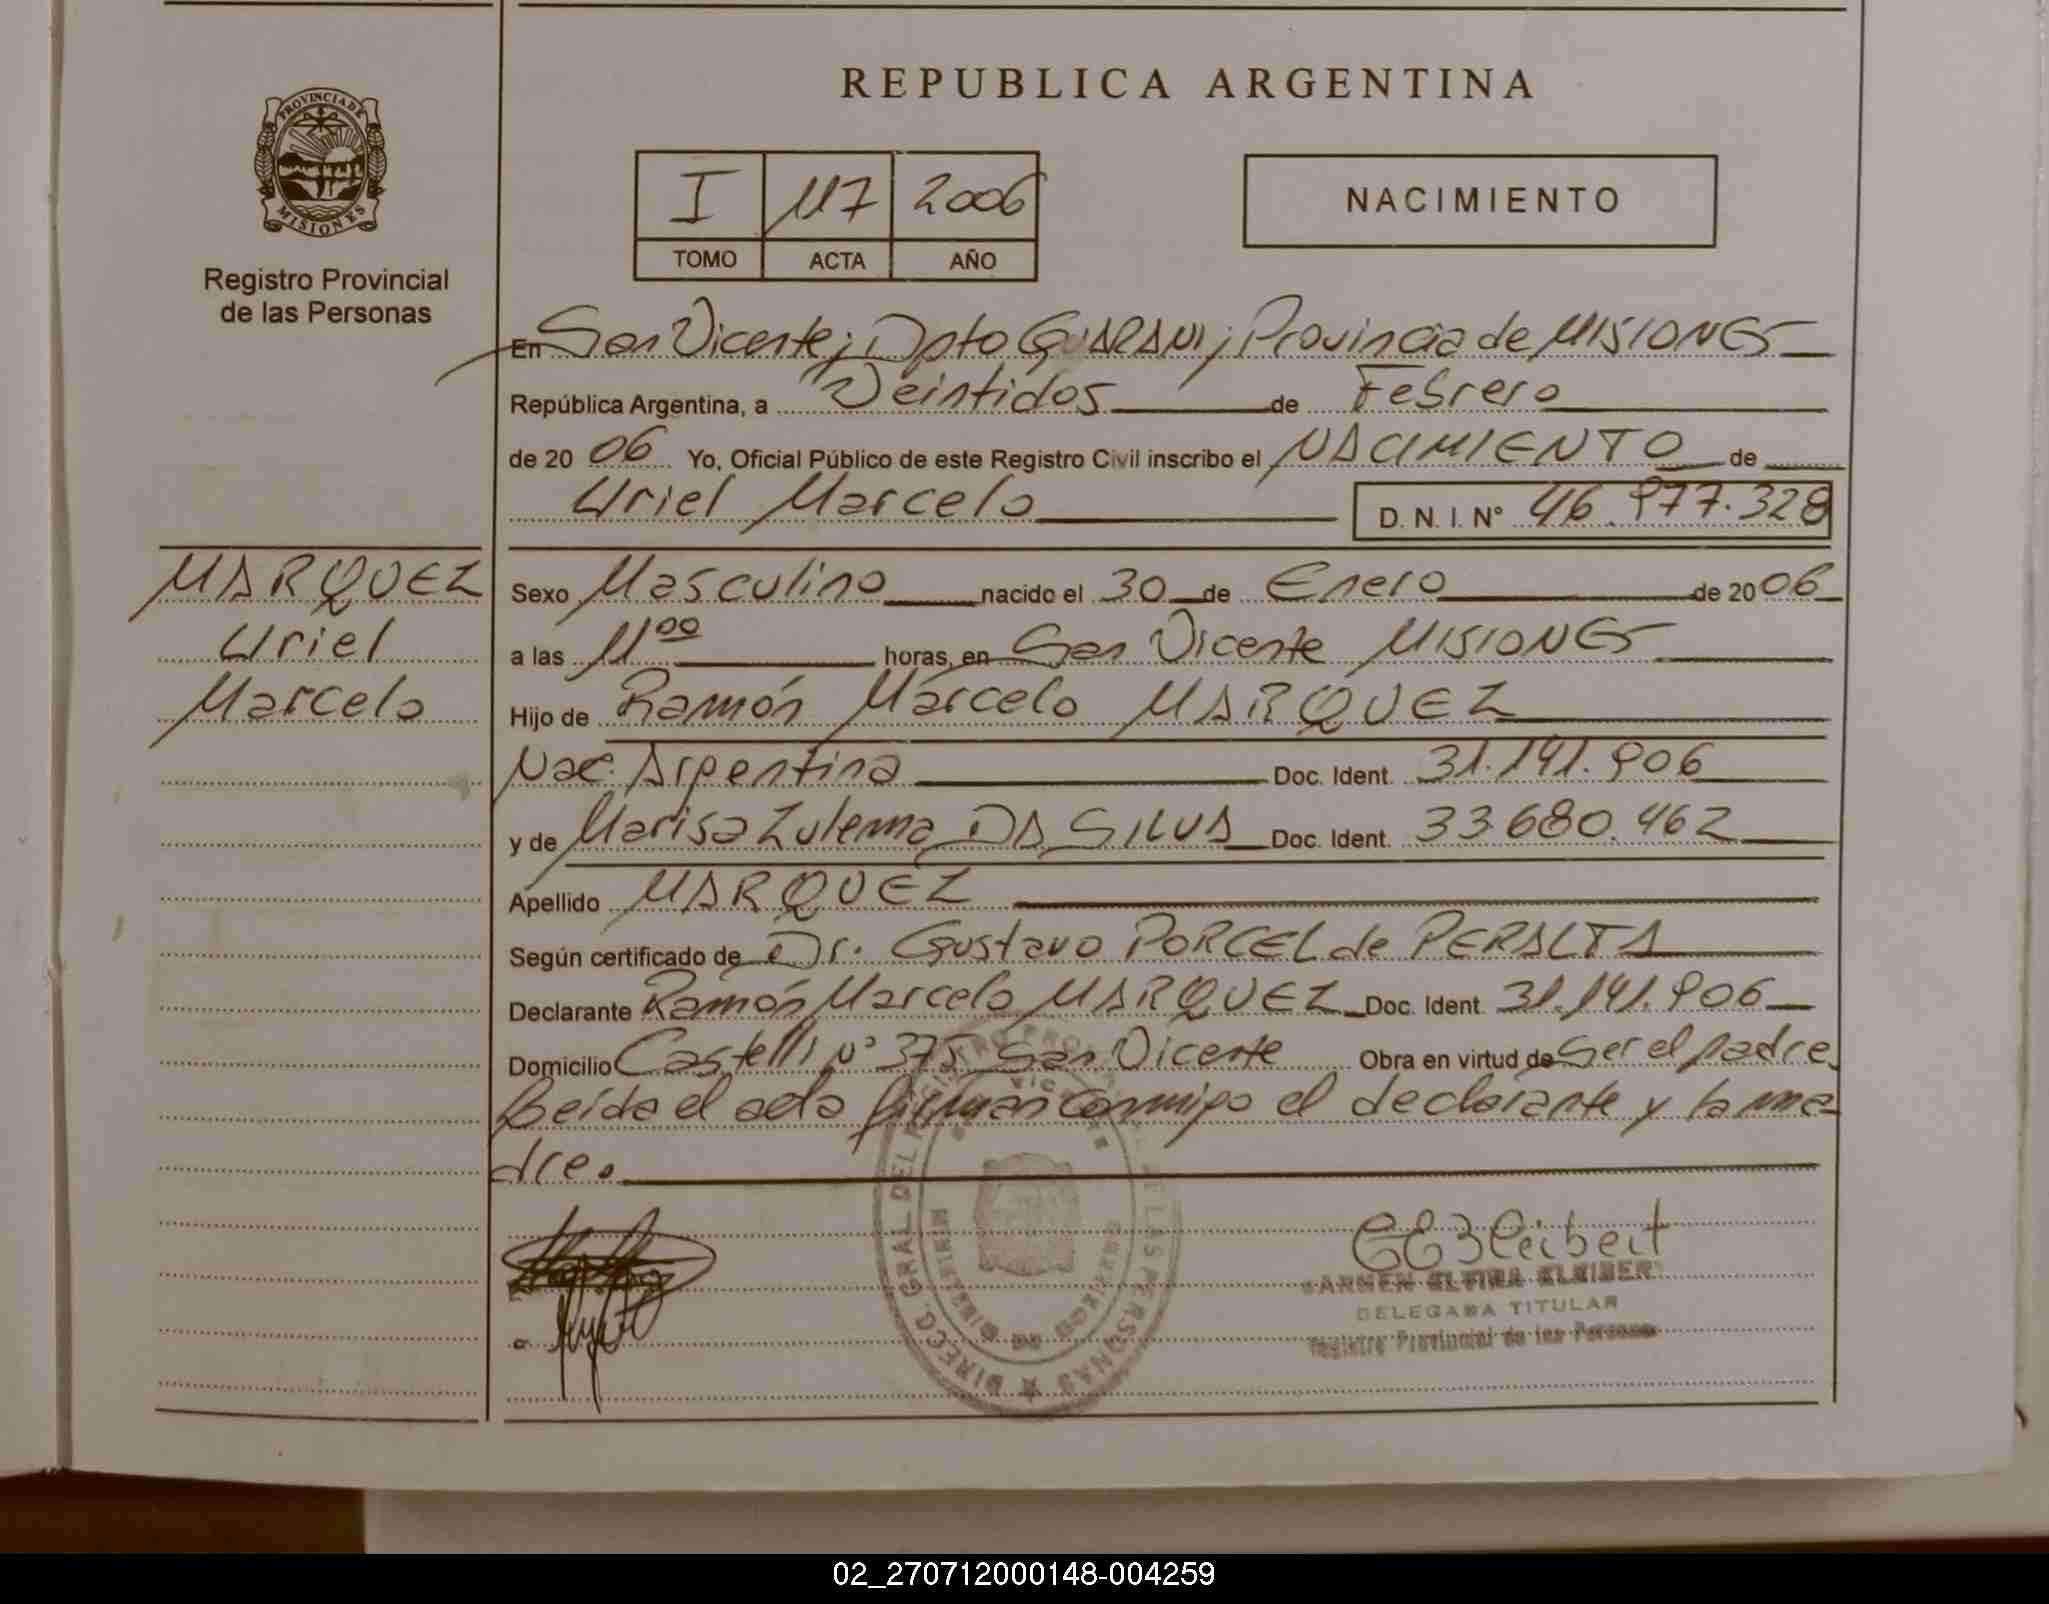 REPUBLICA ARGENTINA
PROVINCIA DE
MISIONES
Registro Provincial
de las Personas
I 117 2006
TOMO ACTA AÑO
NACIMIENTO
En San Vicente; Dpto GUARANI; Provincia de MISIONES
República Argentina, a Veintidos de Febrero
de 20 06 Yo, Oficial Público de este Registro Civil inscribo el NACIMIENTO de
Uriel Marcelo D. N. I. N° 46.977.328
MARQUEZ
Uriel
Marcelo
Sexo Masculino nacido el 30 de Enero de 20 06
a las 11 00 horas, en San Vicente MISIONES
Hijo de Ramón Marcelo MARQUEZ
Nac. Argentina Doc. Ident. 31.141.906
y de Marisa Zulema DA SILVA Doc. Ident. 33.680.462
Apellido MARQUEZ
Según certificado de Dr. Gustavo PORCEL de PERALTA
Declarante Ramón Marcelo MARQUEZ Doc. Ident. 31.141.906
Domicilio Castelli N° 375 San Vicente Obra en virtud de Ser el padre
Leída el acta firman conmigo el declarante y la ma-
dre.
CARMEN ELVIRA KLEIBERT
DELEGADA TITULAR
Registro Provincial de las Personas
02_270712000148-004259